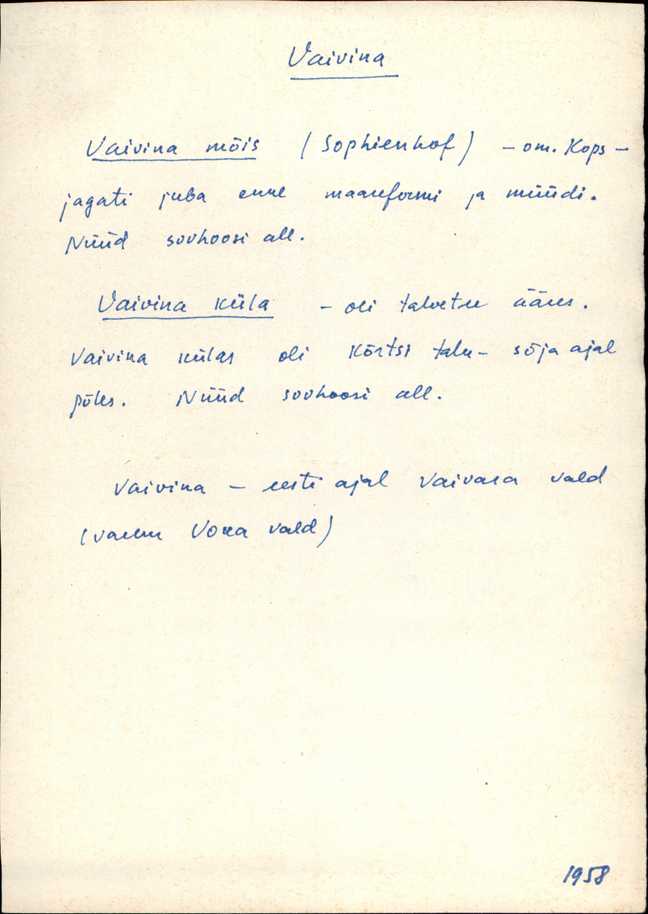 Vaivina
Vaivina mõis (Sophienhof) – om. Kops –
jagati juba enne maareformi ja müüdi.
Nüüd sovhoosi all.
Vaivina küla – oli talvetee ääres.
Vaivina külas oli Kõrtsi talu – sõja ajal
põles. Nüüd sovhoosi all.
Vaivina – eesti ajal Vaivara vald
(varem Voka vald)
1958